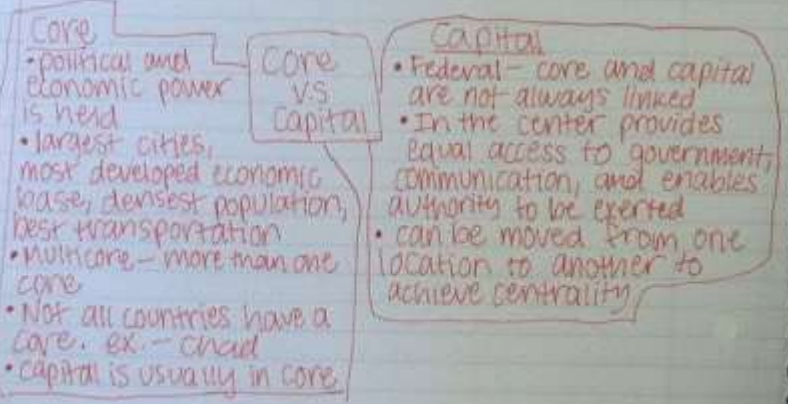 Core
• political and
economic power
is held
• largest cities,
most developed economic
base, densest population,
best transportation
• Multicore - more than one
core
• Not all countries have a
core. ex. - Chad
• capital is usually in core
Core
v.s
Capital
Capital
• Federal - core and capital
are not always linked
• In the center provides
equal access to government,
communication, and enables
authority to be exerted
• can be moved from one
location to another to
achieve centrality